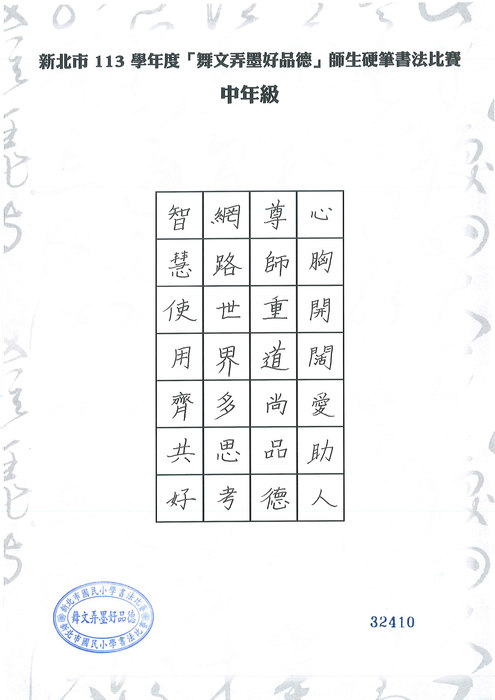 新北市 113 學年度「舞文弄墨好品德」師生硬筆書法比賽
中年級
心胸開闊愛助人
尊師重道尚品德
網路世界多思考
智慧使用齊共好
新北市國民小學書法比賽
舞文弄墨好品德
新北市國民小學書法比賽
32410